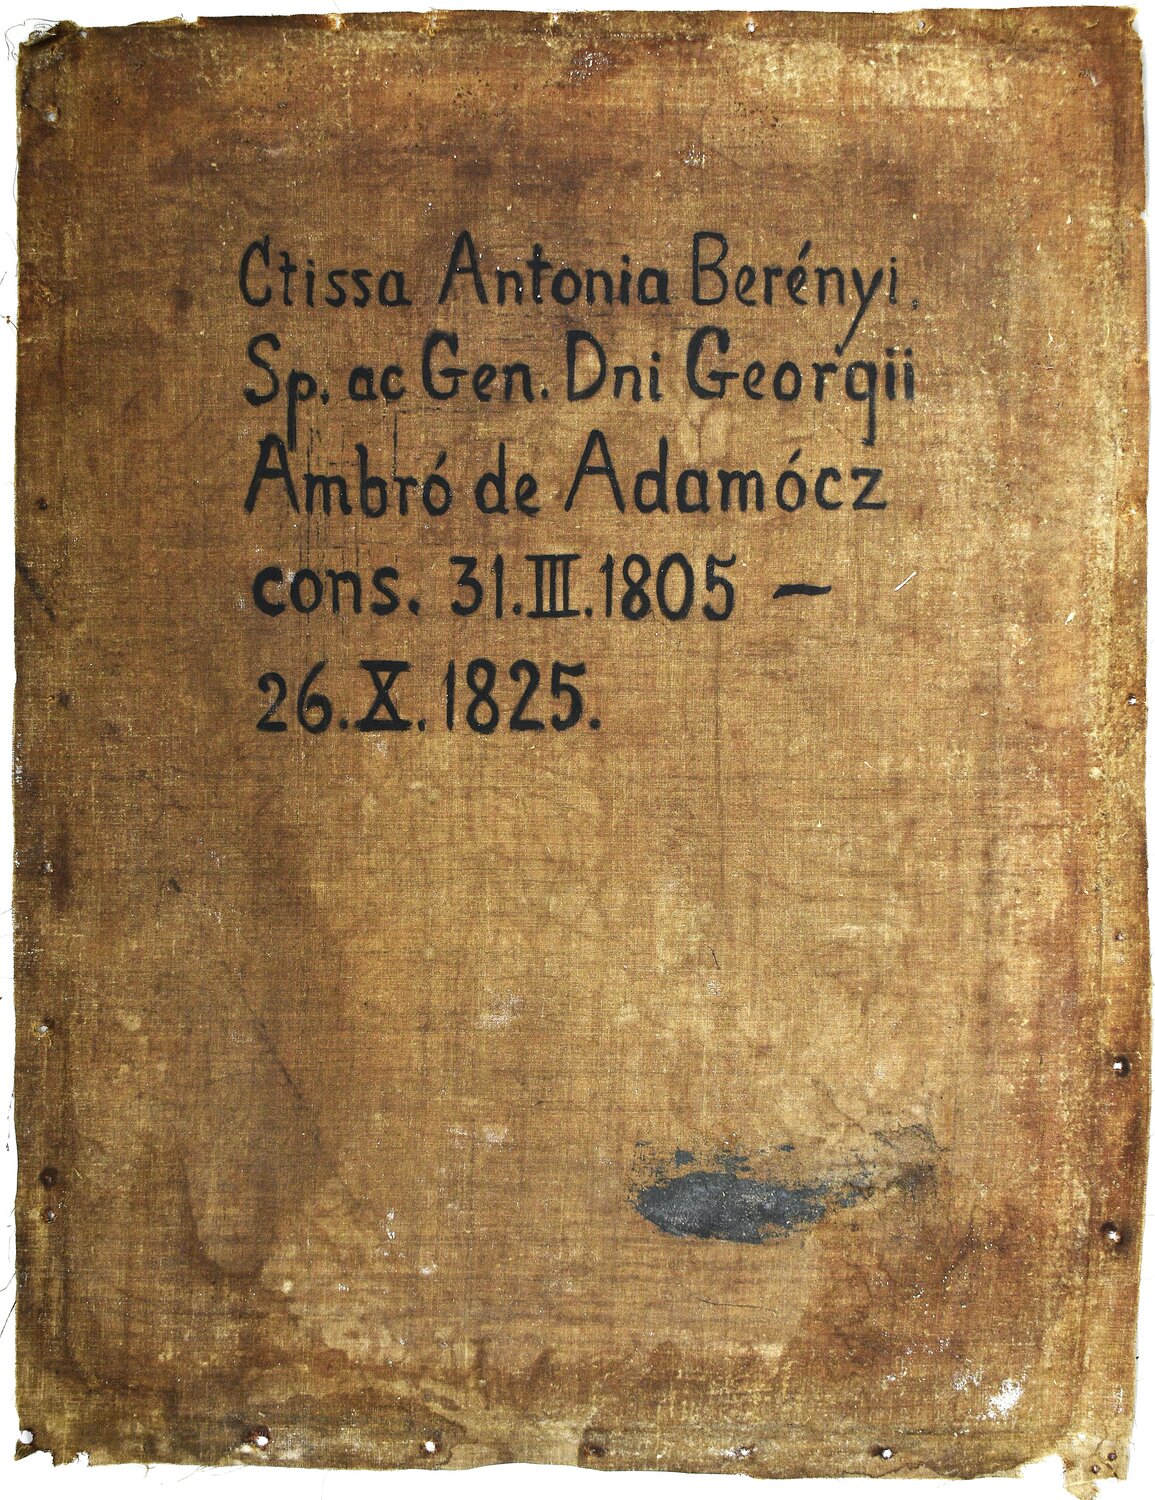 Ctissa Antonia Berényi.
Sp. ac Gen. Dni Georgii
Ambró de Adamócz
cons. 31.III.1805 –
26.X.1825.